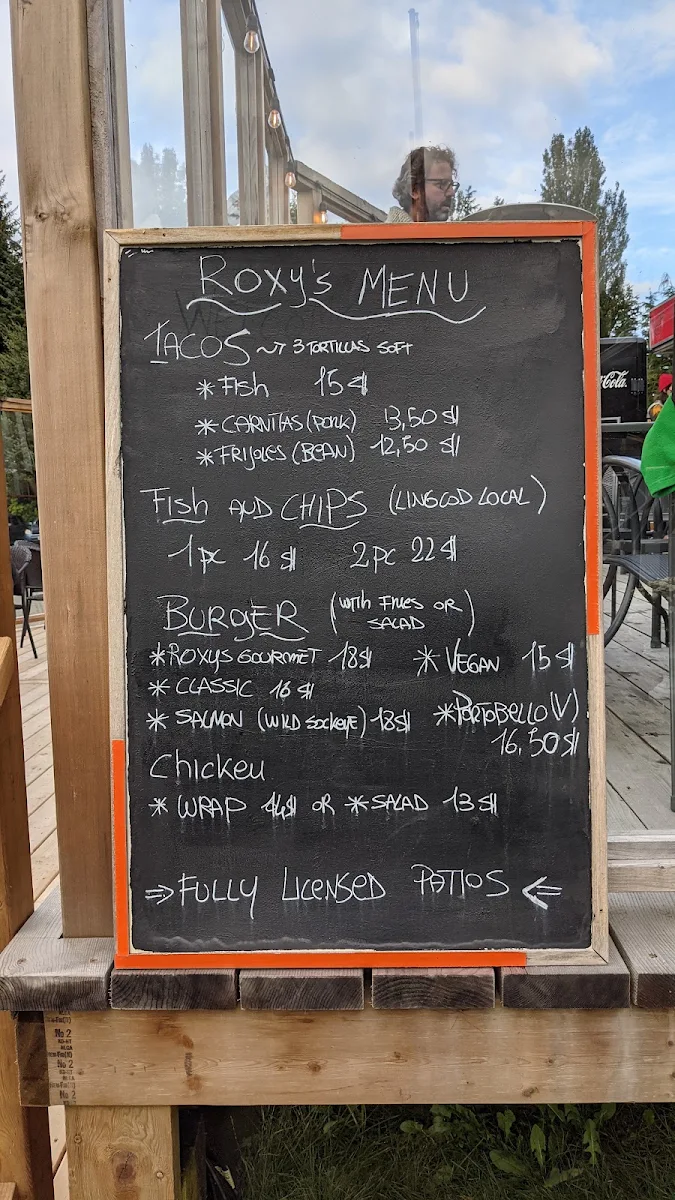 Roxy's MENU
TACOS ~→ 3 TORTILLAS SOFT
* Fish 15$
* CARNITAS (PORK) 13,50 $
* FRIJOLES (BEAN) 12,50 $
Fish AND CHIPS (LINGCOD LOCAL)
1 pc 16 $ 2 pc 22 $
BURGER (with FRIES OR SALAD)
* ROXYS GOURMET 18$ * VEGAN 15 $
* CLASSIC 16 $
* SALMON (WILD SOCKEYE) 18$ * PORTOBELLO (V)
16,50 $
Chicken
* WRAP 14$ OR * SALAD 13 $
⇒ FULLY LICENSED PATIOS ⇐
Cola
No 2
No 2
No 2